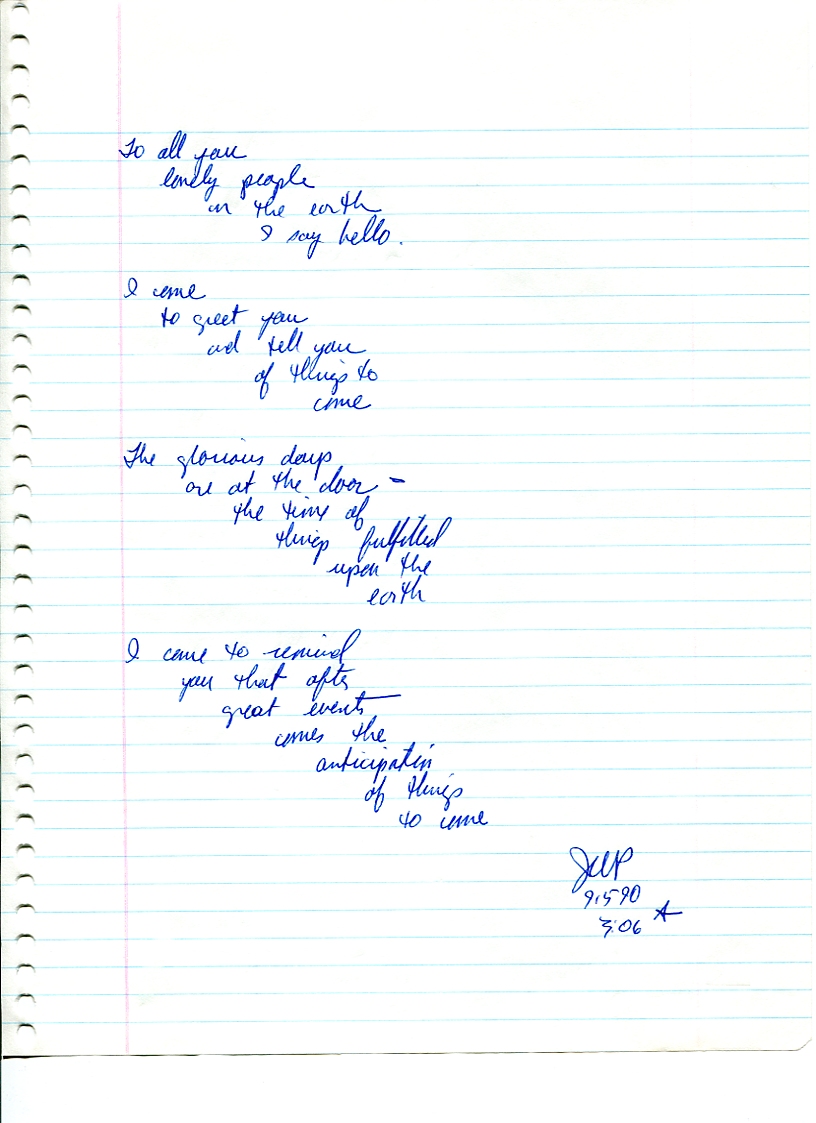 To all you
lonely people
on the earth
I say hello.
I come
to greet you
and tell you
of things to
come
The glorious days
are at the door -
the time of
things fulfilled
upon the
earth
I come to remind
you that after
great events
comes the
anticipation
of things
to come
9.5.90
3:06 A